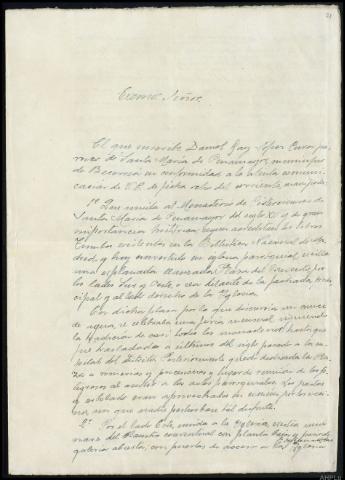 Excmo. Señor.
El que suscribe Daniel López Curro pá-
rroco de Santa María de Penamayor, municipio
de Becerreá en conformidad a la atenta comuni-
cación de V.E. de fecha del corriente,
1º Que unida al Monasterio de
Santa María de Penamayor del siglo XII y de gran
importancia según acreditan los libros
Tumbos existentes en la Biblioteca Nacional de Ma-
drid, y hoy convertido en iglesia parroquial, existía
una explanada, Plaza del por
los lados Sur y Oeste, o sea delante de la fachada prin-
cipal y al lado derecho de la Iglesia.
Por dicha plaza por la que discurría un cauce
de agua, se celebraba una feria mensual, siguiendo
la tradición de casi todos los monasterios, hasta que
fue trasladada a últimos del siglo pasado a la ca-
pital del distrito. Posteriormente quedó destinada la Pla-
za a romerías y procesiones y lugar de reunión de los fe-
ligreses al asistir a los actos parroquiales. Los pastos
y arbolado eran aprovechados en
sin que nadie perturbase tal disfrute.
2º Por el lado Este, unida a la Iglesia, existía una
nave del Claustro conventual con planta baja y
galería abierta, con puertas de acceso a la Iglesia
AHPLu